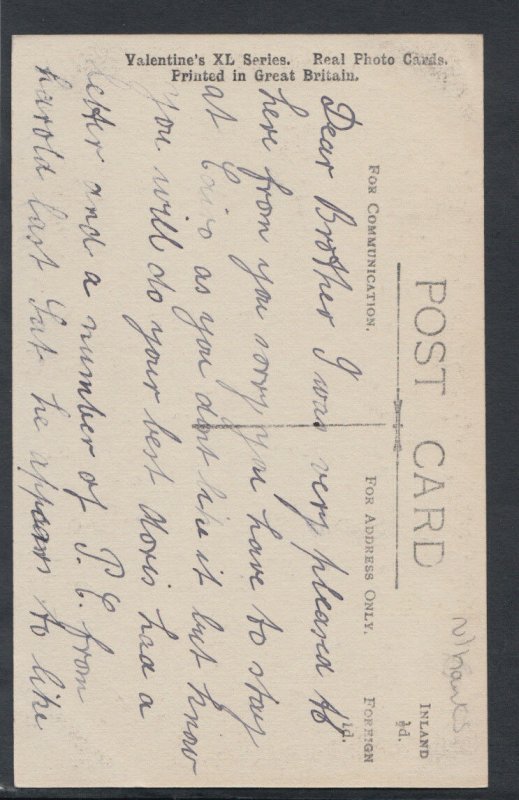 Valentine's XL Series. Real Photo Cards.
Printed in Great Britain.
POST CARD
FOR COMMUNICATION.
FOR ADDRESS ONLY.
INLAND
½d.
FOREIGN
1d.
Dear Brother I was very pleased to
here from you sorry you have to stay
at Cairo as you dont like it but know
you will do your best doris had a
letter and a number of P. C. from
harold last Sat he appears to like